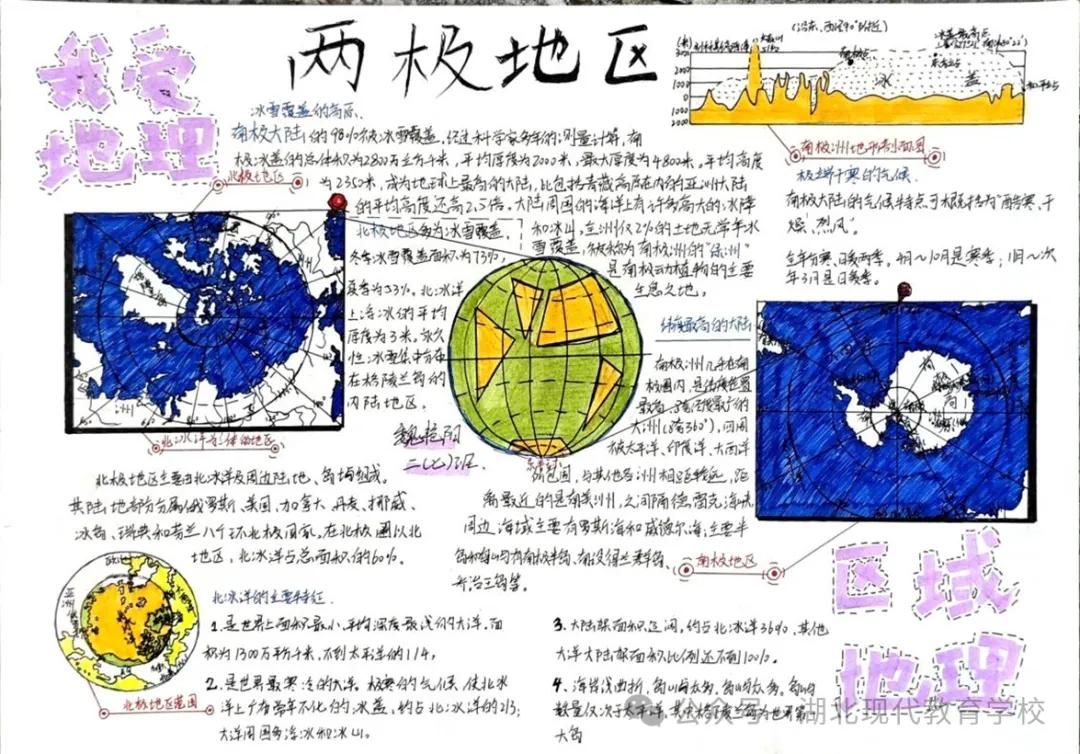 我爱
地理
两极地区
冰雪覆盖的高原
南极大陆的98%被冰雪覆盖,经过科学家多年的测量计算,南
极冰盖的总体积为2800万立方千米,平均厚度为2000米,最大厚度为4800米。平均高度
为2350米,成为地球上最高的大陆,比包括青藏高原在内的亚洲大陆
的平均高度还高2.5倍。大陆周围的海洋上有许多高大的冰障
和冰山,全洲仅2%的土地无常年冰
雪覆盖,被称为南极洲的“绿洲”
是南极动植物的主要
生息之地。
(沿东、西经90°附近)
(米)
3000
2000
1000
0
1000
2000
冰
盖
南极洲地形剖面图
极端干寒的气候
南极大陆的气候特点可概括为“酷寒、干
燥、烈风”。
全年分寒、暖两季。4月~10月是寒季;11月~次
年3月是暖季。
北极地区
北极地区多为冰雪覆盖。
冬季冰雪覆盖面积为73%,
夏季为53%。北冰洋
上浮冰的平均
厚度为3米。永久
性冰雪集中分布
在格陵兰岛的
内陆地区。
北冰洋为主体的地区
魏艳阳
二(七)班.
纬度最高的大陆
南极洲几乎在南
极圈内,是纬度位置
最高、跨经度最广的
大洲(跨360°),四周
被太平洋、印度洋、大西洋
所包围,与其他各洲相距较远,距
离最近的是南美洲,之间隔德雷克海峡
周边海域主要有罗斯海和威德尔海,主要半
南极地区
北极地区主要由北冰洋及周边陆地、岛屿组成。
其陆地部分分属俄罗斯、美国、加拿大、丹麦、挪威、
冰岛、瑞典和芬兰八个环北极国家。在北极圈以北
地区,北冰洋占总面积的60%。
亚洲
北极地区范围
北冰洋的主要特征.
1.是世界上面积最小,平均深度最浅的大洋,面
积为1300万平方千米,不到太平洋的1/14。
2.是世界最寒冷的大洋。极寒的气候使北冰
洋上广布常年不化的冰盖,约占北冰洋的2/3;
大洋周围多浮冰和冰山。
3.大陆架面积辽阔,约占北冰洋36%,其他
大洋大陆架面积比例还不到10%。
4.海岸线曲折,岛屿众多。岛屿
数量仅次于太平洋,其中格陵兰岛为世界第一
大岛
区域
地理
公众号·湖北现代教育学校